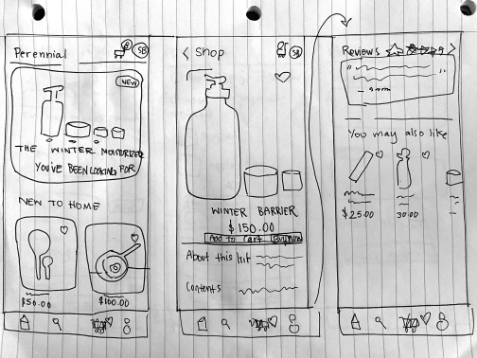 Perennial
SB
NEW
THE WINTER MOISTURIZER
YOU'VE BEEN LOOKING FOR
NEW TO HOME
$50.00
$100.00
< Shop
SB
WINTER BARRIER
$150.00
ADD TO CART
About this kit
Contents
Reviews
You may also like
$25.00
30.00